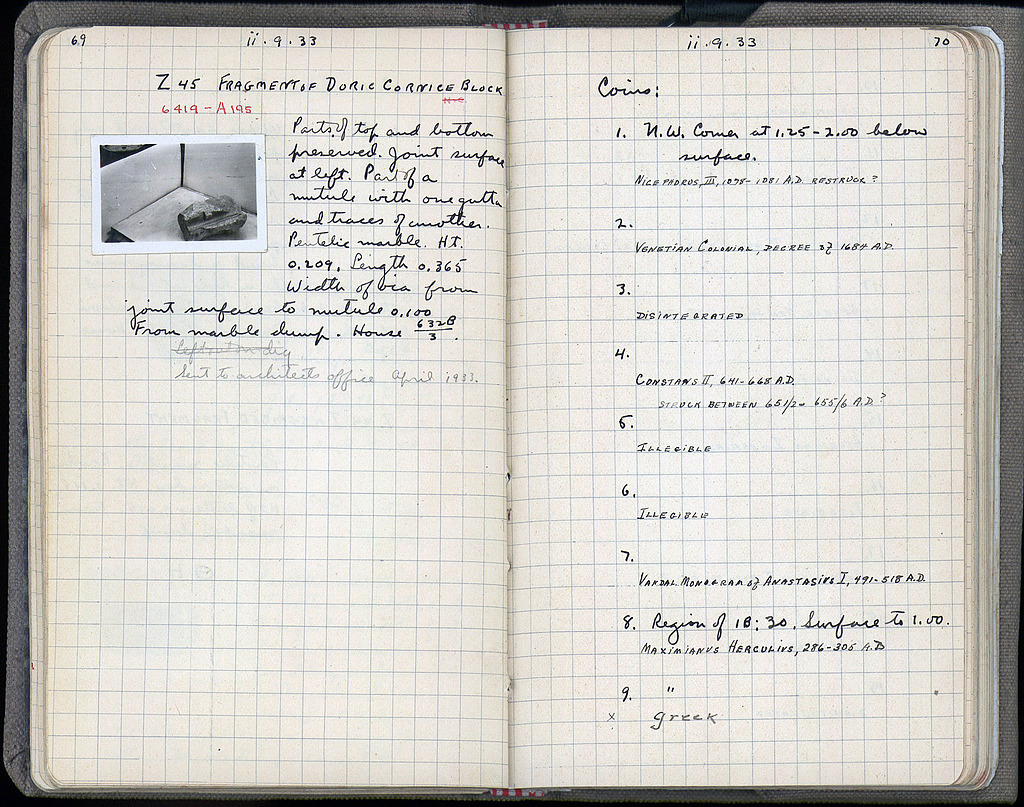 69
ii.9.33
Z 45 FRAGMENT OF DORIC CORNICE BLOCK
N-C
6419 - A 195
Parts of top and bottom
preserved. Joint surface
at left. Part of a
mutule with one gutta
and traces of another.
Pentelic marble. HT.
0.209, Length 0.365
Width of via from
joint surface to mutule 0.100
From marble dump. House 632B/3.
Left on dig
Sent to architects office April 1933.
ii.9.33
70
Coins:
1. N.W. Corner at 1.25-2.00 below
surface.
NICEPHORUS, III, 1078-1081 A.D. RESTRUCK?
2.
VENETIAN COLONIAL, DECREE of 1684 A.D.
3.
DISINTEGRATED
4.
CONSTANS II, 641-668 A.D.
STRUCK BETWEEN 651/2 - 655/6 A.D.?
5.
ILLEGIBLE
6.
ILLEGIBLE
7.
VANDAL MONOGRAM of ANASTASIUS I, 491-518 A.D.
8. Region of 18:30. Surface to 1.00.
MAXIMIANUS HERCULIUS, 286-305 A.D
9. "
x Greek